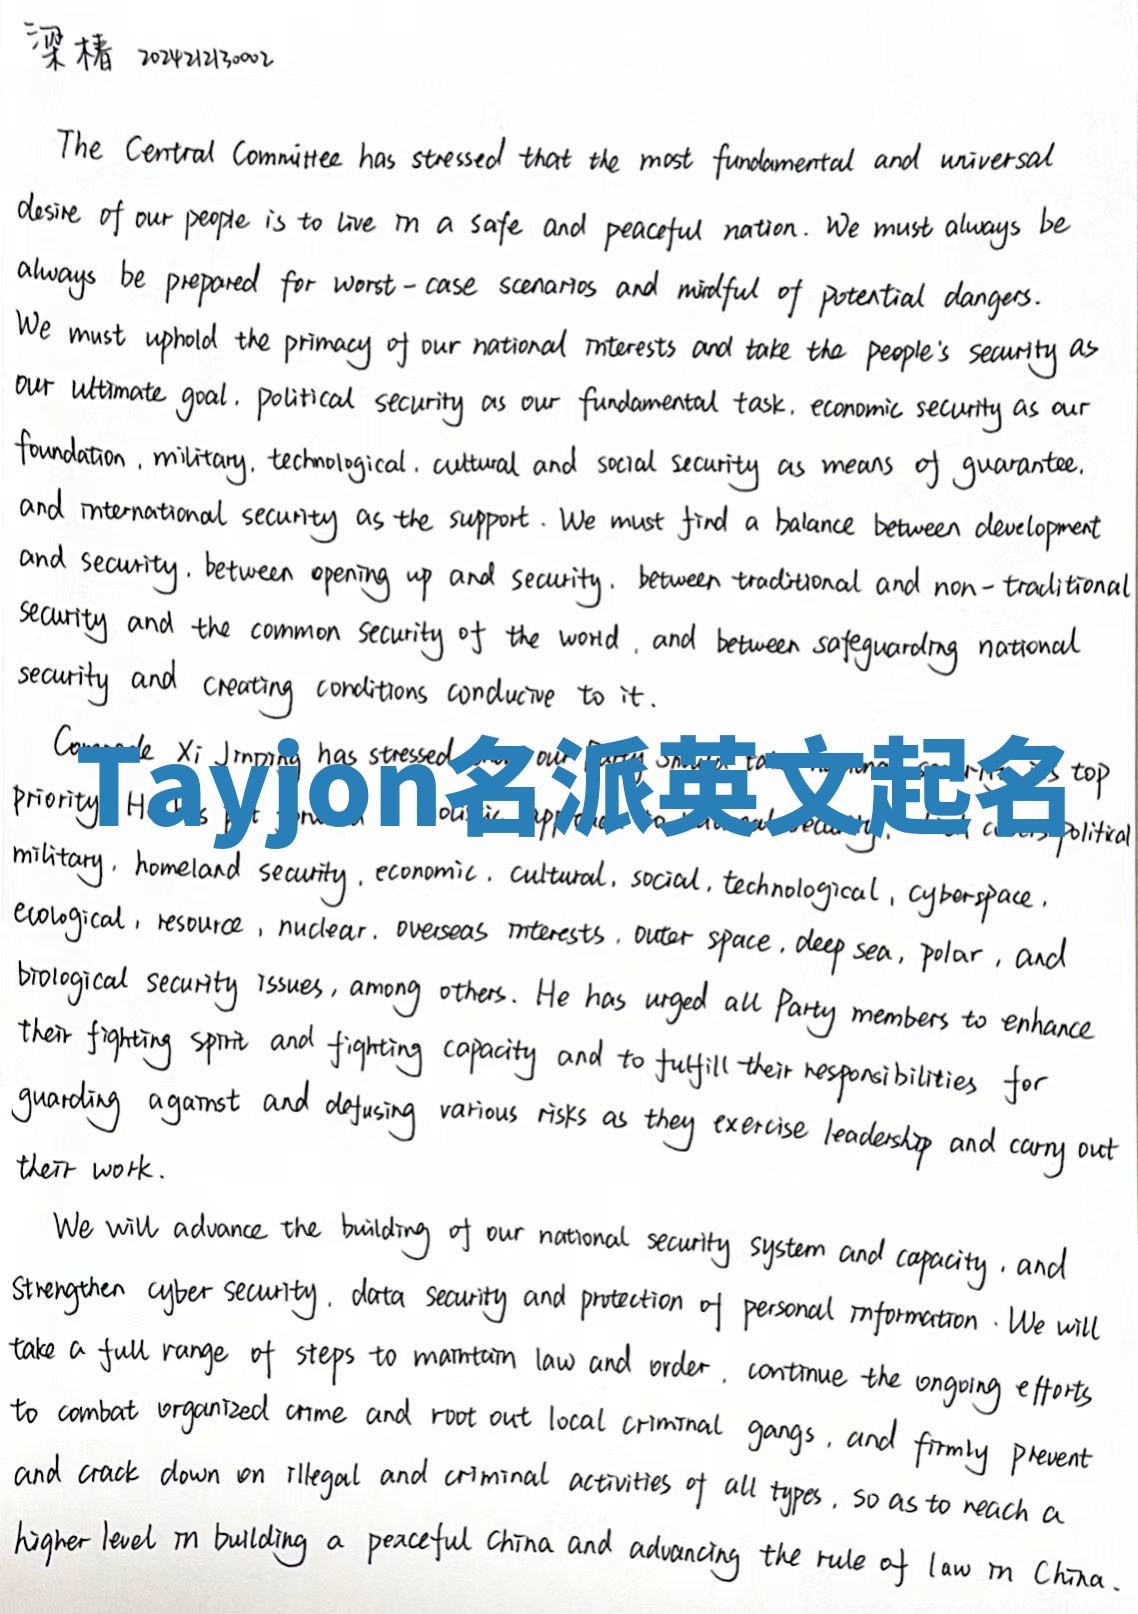 梁椿 2024212130002
The Central Committee has stressed that the most fundamental and universal
desire of our people is to live in a safe and peaceful nation. We must always be
always be prepared for worst-case scenarios and mindful of potential dangers.
We must uphold the primacy of our national interests and take the people's security as
our ultimate goal, political security as our fundamental task, economic security as our
foundation, military, technological, cultural and social security as means of guarantee,
and international security as the support. We must find a balance between development
and security, between opening up and security, between traditional and non-traditional
security and the common security of the world, and between safeguarding national
security and creating conditions conducive to it.
Xi Jinping has stressed our Party top
Tayjon名派英文起名
priority. political
military, homeland security, economic, cultural, social, technological, cyberspace,
ecological, resource, nuclear, overseas interests, outer space, deep sea, polar, and
biological security issues, among others. He has urged all Party members to enhance
their fighting spirit and fighting capacity and to fulfill their responsibilities for
guarding against and defusing various risks as they exercise leadership and carry out
their work.
We will advance the building of our national security system and capacity, and
strengthen cyber security, data security and protection of personal information. We will
take a full range of steps to maintain law and order, continue the ongoing efforts
to combat organized crime and root out local criminal gangs, and firmly prevent
and crack down on illegal and criminal activities of all types, so as to reach a
higher level in building a peaceful China and advancing the rule of law in China.